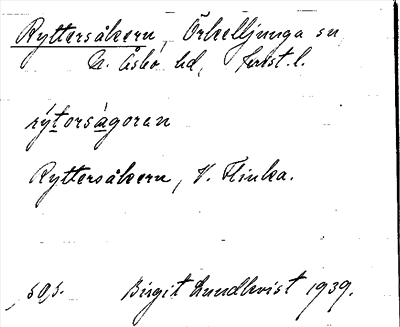 Ryttersåkern, Örkelljunga sn,
N. Åsbo hd,
rýtorságoran
Ryttersåkern, V. Flinka.
50,5. Birgit Lundkvist 1939.